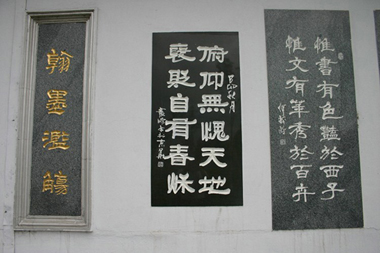 惟書有色艷於西子
惟文有華秀於百卉
俯仰無愧天地
褒貶自有春秋
翰墨濫觴